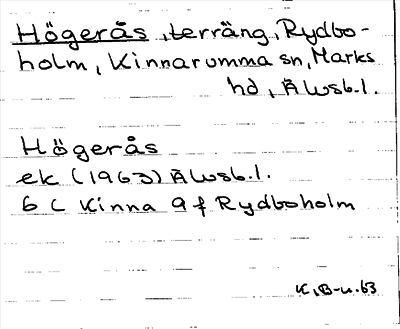 Högerås, terräng, Rydbo-
holm, Kinnarumma sn, Marks
hd, Älvsb.l.
Högerås
ek (1963) Älvsb.l.
6 C Kinna 9 f Rydboholm
K.B-n.63